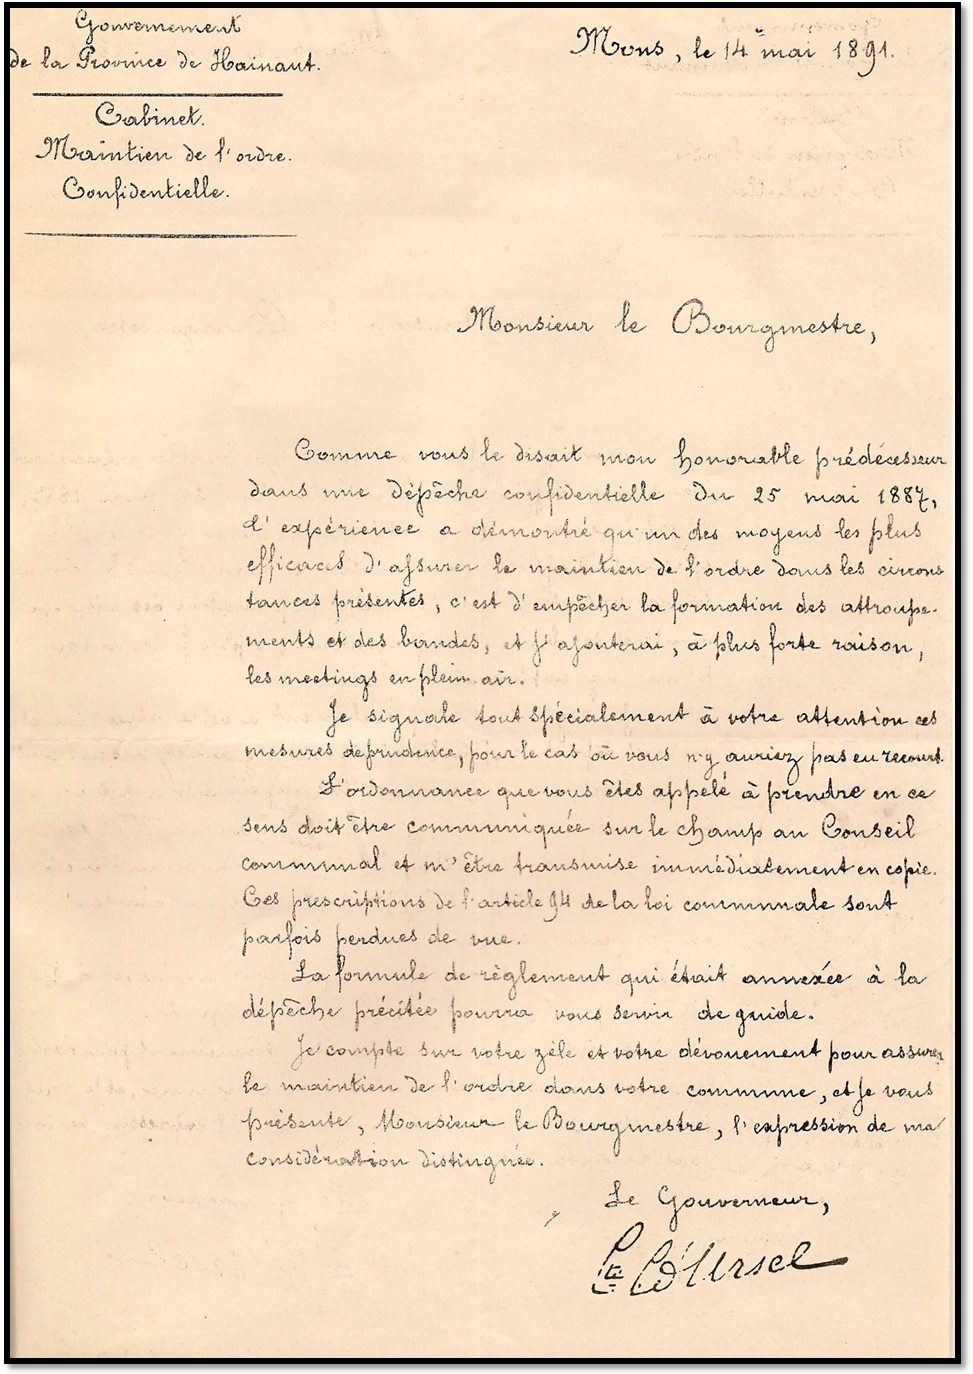 Gouvernement
de la Province de Hainaut.
Mons, le 14 mai 1891.
Cabinet.
Maintien de l'ordre.
Confidentielle.
Monsieur le Bourgmestre,
Comme vous le disait mon honorable prédécesseur
dans une dépêche confidentielle du 25 mai 1887,
l'expérience a démontré qu'un des moyens les plus
efficaces d'assurer le maintien de l'ordre dans les circons
tances présentes, c'est d'empêcher la formation des attroupe-
ments et des bandes, et j'ajouterai, à plus forte raison,
les meetings en plein air.
Je signale tout spécialement à votre attention ces
mesures de prudence, pour le cas où vous n'y auriez pas eu recourt.
L'ordonnance que vous êtes appelé à prendre en ce
sens doit être communiquée sur le champ au Conseil
communal et m'être transmise immédiatement en copie.
Ces prescriptions de l'article 94 de la loi communale sont
parfois perdues de vue.
La formule de règlement qui était annexée à la
dépêche précitée pourra vous servir de guide.
Je compte sur votre zèle et votre dévouement pour assurer
le maintien de l'ordre dans votre commune, et je vous
présente, Monsieur le Bourgmestre, l'expression de ma
considération distinguée.
Le Gouverneur,
d'Ursel